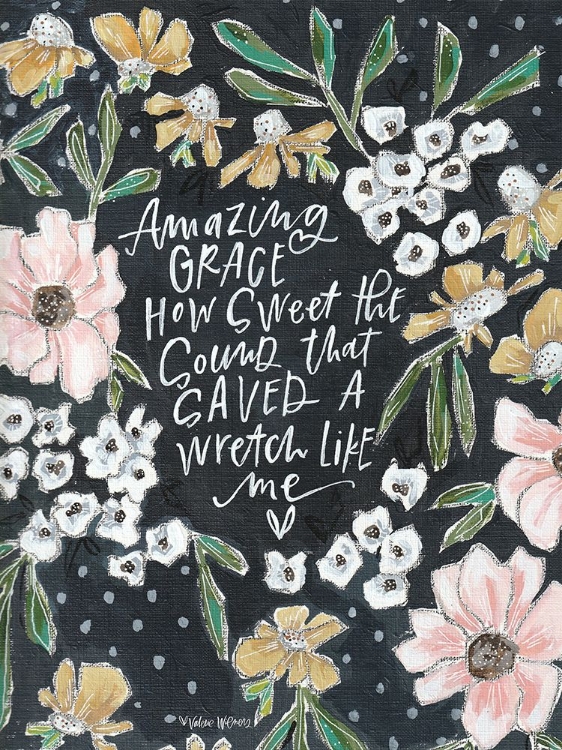 Amazing
GRACE
How Sweet the
Sound that
SAVED A
wretch like
me